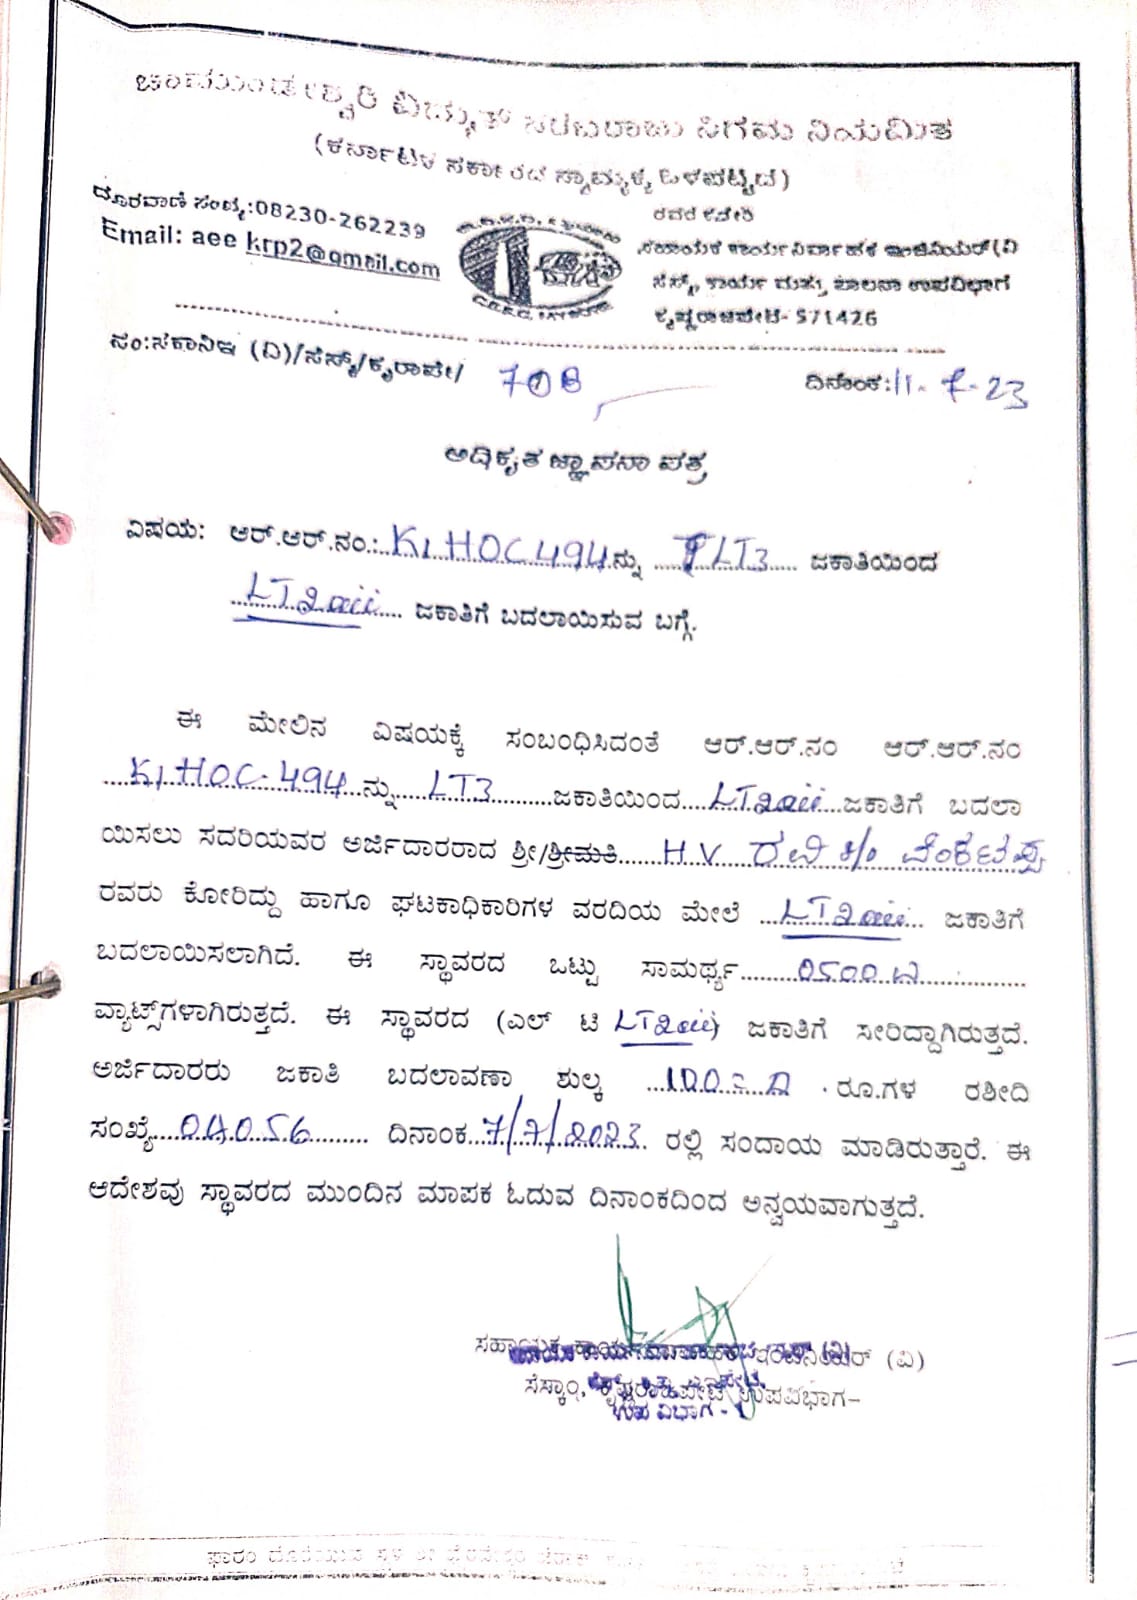 ಚಾಮುಂಡೇಶ್ವರಿ ವಿದ್ಯುತ್ ಸರಬರಾಜು ನಿಗಮ ನಿಯಮಿತ
(ಕರ್ನಾಟಕ ಸರ್ಕಾರದ ಸ್ವಾಮ್ಯಕ್ಕೆ ಒಳಪಟ್ಟಿದೆ)
ದೂರವಾಣಿ ಸಂಖ್ಯೆ:08230-262239
Email: aee krp2@gmail.com
ರವರ ಕಚೇರಿ
ಸಹಾಯಕ ಕಾರ್ಯನಿರ್ವಾಹಕ ಇಂಜಿನಿಯರ್(ವಿ
ಸೆಸ್ಕ್, ಕಾರ್ಯ ಮತ್ತು ಪಾಲನಾ ಉಪವಿಭಾಗ
ಕೃಷ್ಣರಾಜಪೇಟೆ- 571426
ಸಂ:ಸಕಾನಿಇ (ವಿ)/ಸೆಸ್ಕ್/ಕೃರಾಪೇ/ 708 ದಿನಾಂಕ:11-7-23
ಅಧಿಕೃತ ಜ್ಞಾಪನಾ ಪತ್ರ
ವಿಷಯ: ಆರ್.ಆರ್.ನಂ.:..K1HOC494.ನ್ನು .....LT3..... ಜಕಾತಿಯಿಂದ
...LT2aii.... ಜಕಾತಿಗೆ ಬದಲಾಯಿಸುವ ಬಗ್ಗೆ.
ಈ ಮೇಲಿನ ವಿಷಯಕ್ಕೆ ಸಂಬಂಧಿಸಿದಂತೆ ಆರ್.ಆರ್.ನಂ ಆರ್.ಆರ್.ನಂ
...K1HOC-494..ನ್ನು.....LT3..........ಜಕಾತಿಯಿಂದ....LT2aii...ಜಕಾತಿಗೆ ಬದಲಾ
ಯಿಸಲು ಸದರಿಯವರ ಅರ್ಜಿದಾರರಾದ ಶ್ರೀ/ಶ್ರೀಮತಿ.....H.V. ರವಿ s/o ವೆಂಕಟಪ್ಪ
ರವರು ಕೋರಿದ್ದು ಹಾಗೂ ಘಟಕಾಧಿಕಾರಿಗಳ ವರದಿಯ ಮೇಲೆ ...LT2aii... ಜಕಾತಿಗೆ
ಬದಲಾಯಿಸಲಾಗಿದೆ. ಈ ಸ್ಥಾವರದ ಒಟ್ಟು ಸಾಮರ್ಥ್ಯ.........0500.W..............
ವ್ಯಾಟ್ಸ್‌ಗಳಾಗಿರುತ್ತದೆ. ಈ ಸ್ಥಾವರದ (ಎಲ್ ಟಿ LT2aii) ಜಕಾತಿಗೆ ಸೀರಿದ್ದಾಗಿರುತ್ತದೆ.
ಅರ್ಜಿದಾರರು ಜಕಾತಿ ಬದಲಾವಣಾ ಶುಲ್ಕ ...100=0.. .ರೂ.ಗಳ ರಶೀದಿ
ಸಂಖ್ಯೆ....04056......... ದಿನಾಂಕ..7/7/2023. ರಲ್ಲಿ ಸಂದಾಯ ಮಾಡಿರುತ್ತಾರೆ. ಈ
ಆದೇಶವು ಸ್ಥಾವರದ ಮುಂದಿನ ಮಾಪಕ ಓದುವ ದಿನಾಂಕದಿಂದ ಅನ್ವಯವಾಗುತ್ತದೆ.
ಸಹಾಯಕ ಇಂಜಿನಿಯರ್ (ವಿ)
ಸೆಸ್ಕಾಂ, ಕೃಷ್ಣರಾಜಪೇಟೆ ಉಪವಿಭಾಗ-
ಉಪ ವಿಭಾಗ -